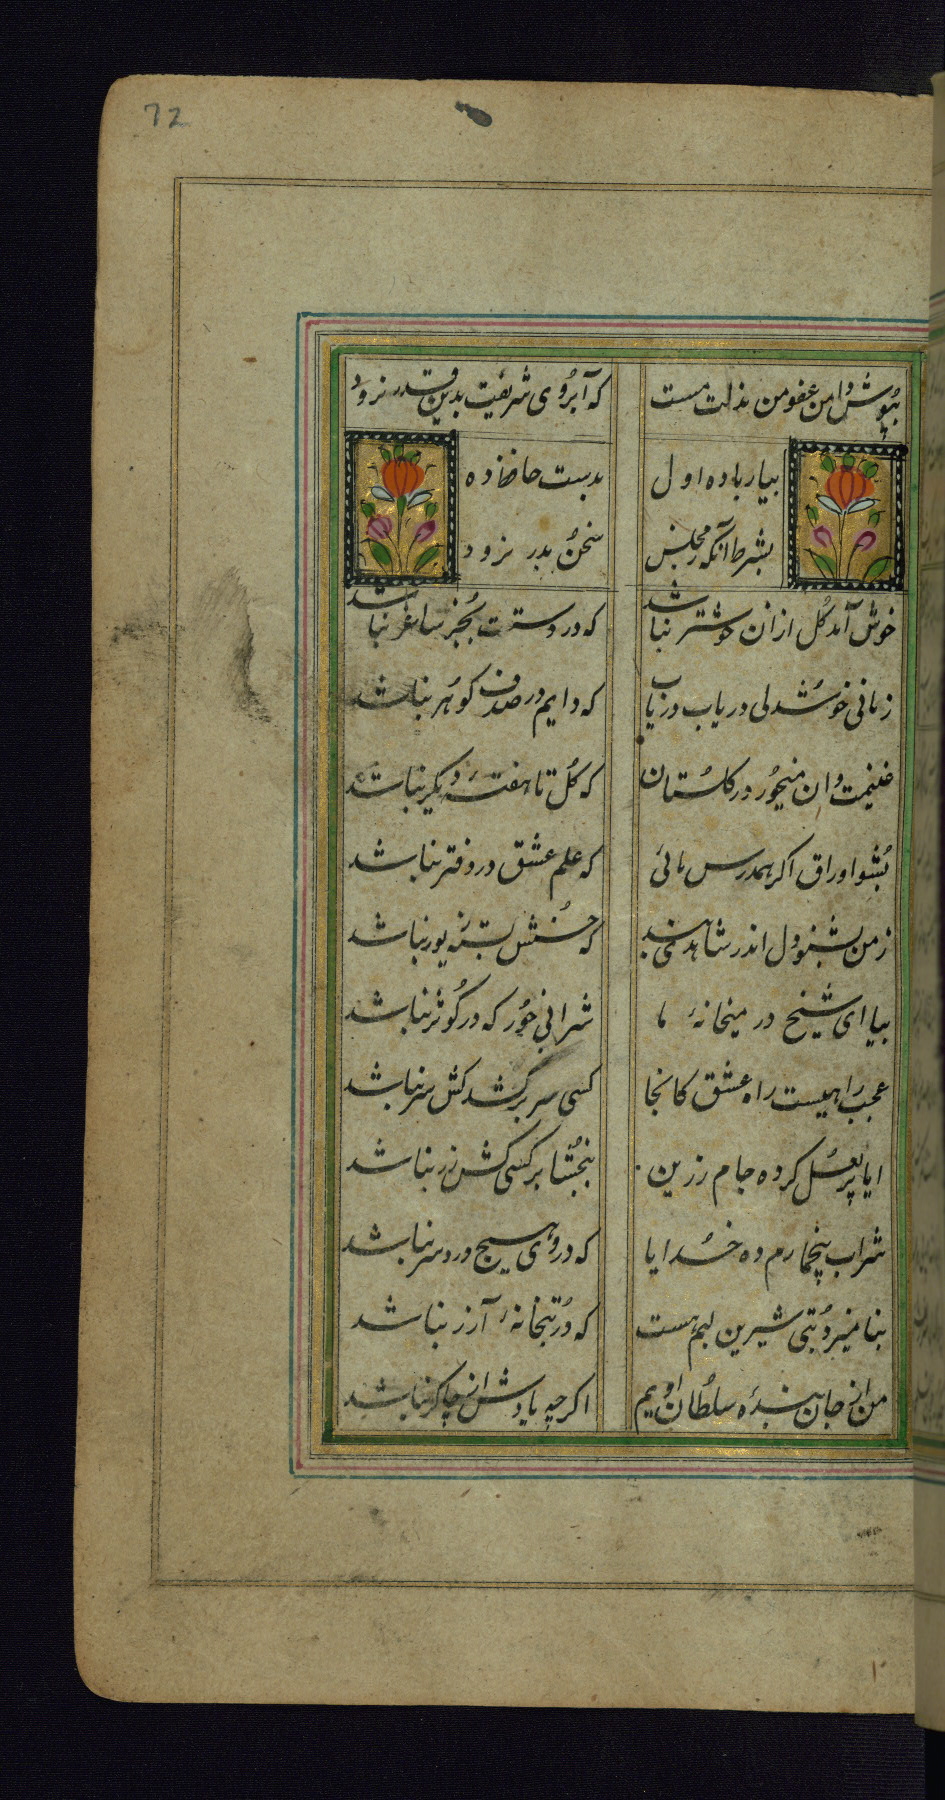 72
بپوش دامن عفو من بذلت مست که آبروی شریفیت بدین قدر نرود
بیار باده اول بدست حافظ ده
بشرط آنکه ز مجلس سخن بدر نرود
خوش آمد گل ازان خوشتر نباشد که در دستت بجز ساغر نباشد
زمانی خوشدلی دریاب دریاب که دایم در صدف کوهر نباشد
غنیمت دان میخور در کلستان که کل تا هفتهٔ دیکر نباشد
بشو اوراق اکر همدرس مائی که علم عشق در دفتر نباشد
ز من بشنو دل اندر شاهدی بند که حسنش بستهٔ زیور نباشد
بیا ای شیخ در میخانهٔ ما شرابی خور که در کوثر نباشد
عجب راهیست راه عشق کانجا کسی سر برکشد کش سر نباشد
ایا پر لعل کرده جام زرین ببخشا بر کسی کش زر نباشد
شراب بیخمارم ده خدایا که در وی هیچ درد سر نباشد
بنامیزد بتی شیرین لبم هست که در بتخانهٔ آزر نباشد
من از جان بندهٔ سلطان اویسم اکرچه یادش از چاکر نباشد